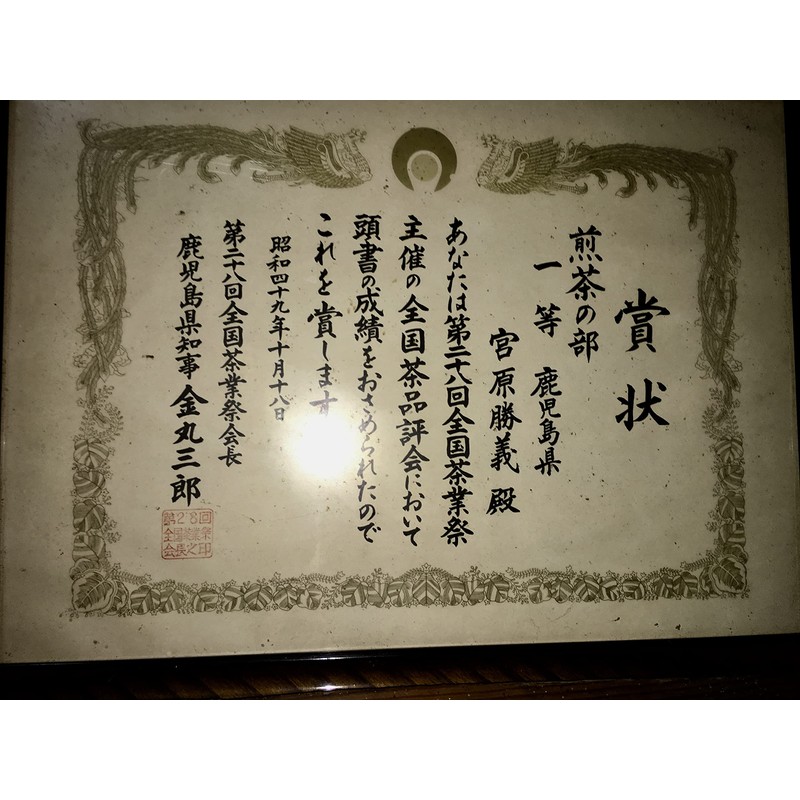 賞状
煎茶の部
一等 鹿児島県
宮原勝義殿
あなたは第二十八回全国茶業祭
主催の全国茶品評会において
頭書の成績をおさめられたので
これを賞します
昭和四十九年十月十八日
第二十八回全国茶業祭会長
鹿児島県知事 金丸三郎
第28回
全国茶業祭
会長之印